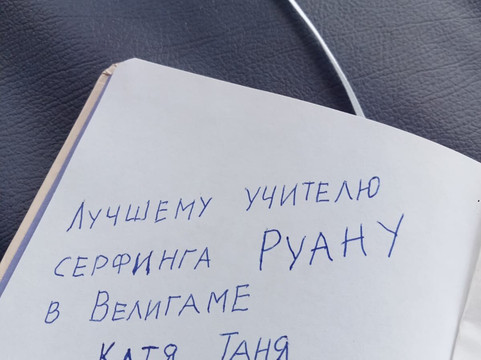 Лучшему учителю
серфинга Руану
в Велигаме
Катя Таня